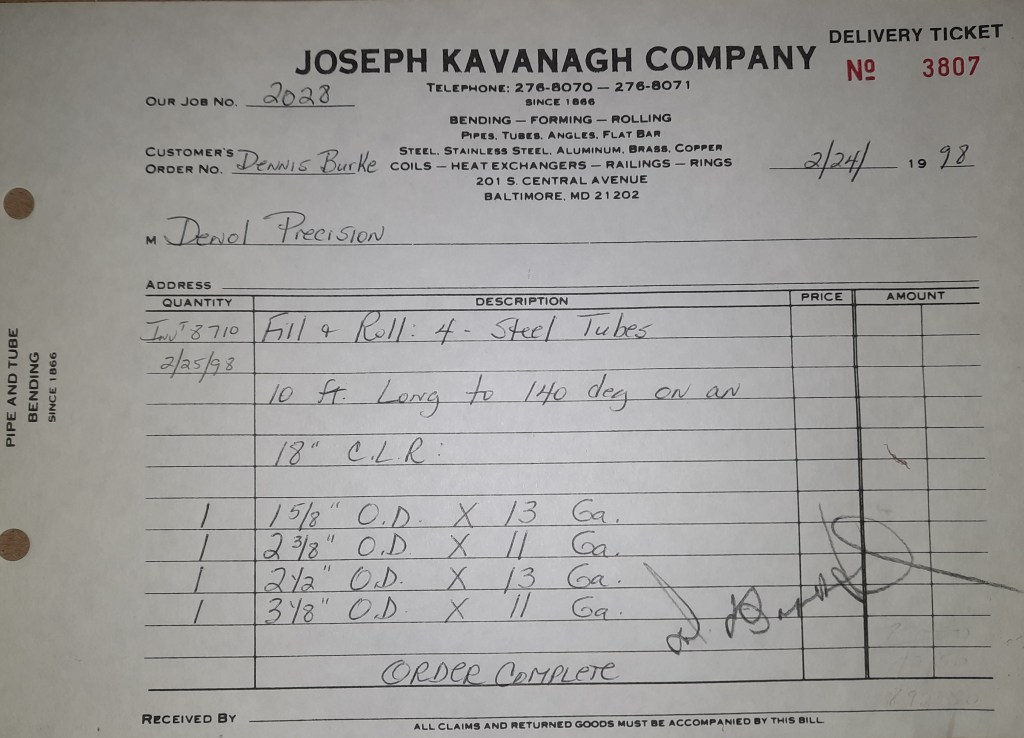 DELIVERY TICKET
JOSEPH KAVANAGH COMPANY
No 3807
TELEPHONE: 276-8070 — 276-8071
OUR JOB NO. 2028
SINCE 1866
BENDING — FORMING — ROLLING
PIPES, TUBES, ANGLES, FLAT BAR
STEEL, STAINLESS STEEL, ALUMINUM, BRASS, COPPER
CUSTOMER'S ORDER NO. Dennis Burke
COILS — HEAT EXCHANGERS — RAILINGS — RINGS
2/24/ 19 98
201 S. CENTRAL AVENUE
BALTIMORE, MD 21202
M Denol Precision
ADDRESS
QUANTITY DESCRIPTION PRICE AMOUNT
Inv't 8710 Fill & Roll: 4 - Steel Tubes
2/25/98
10 ft. Long to 140 deg on an
18" C.L.R:
1 1 5/8" O.D. X 13 Ga.
1 2 3/8" O.D X 11 Ga.
1 2 1/2" O.D. X 13 Ga.
1 3 1/8" O.D. X 11 Ga.
ORDER COMPLETE
RECEIVED BY
ALL CLAIMS AND RETURNED GOODS MUST BE ACCOMPANIED BY THIS BILL
PIPE AND TUBE
BENDING
SINCE 1866